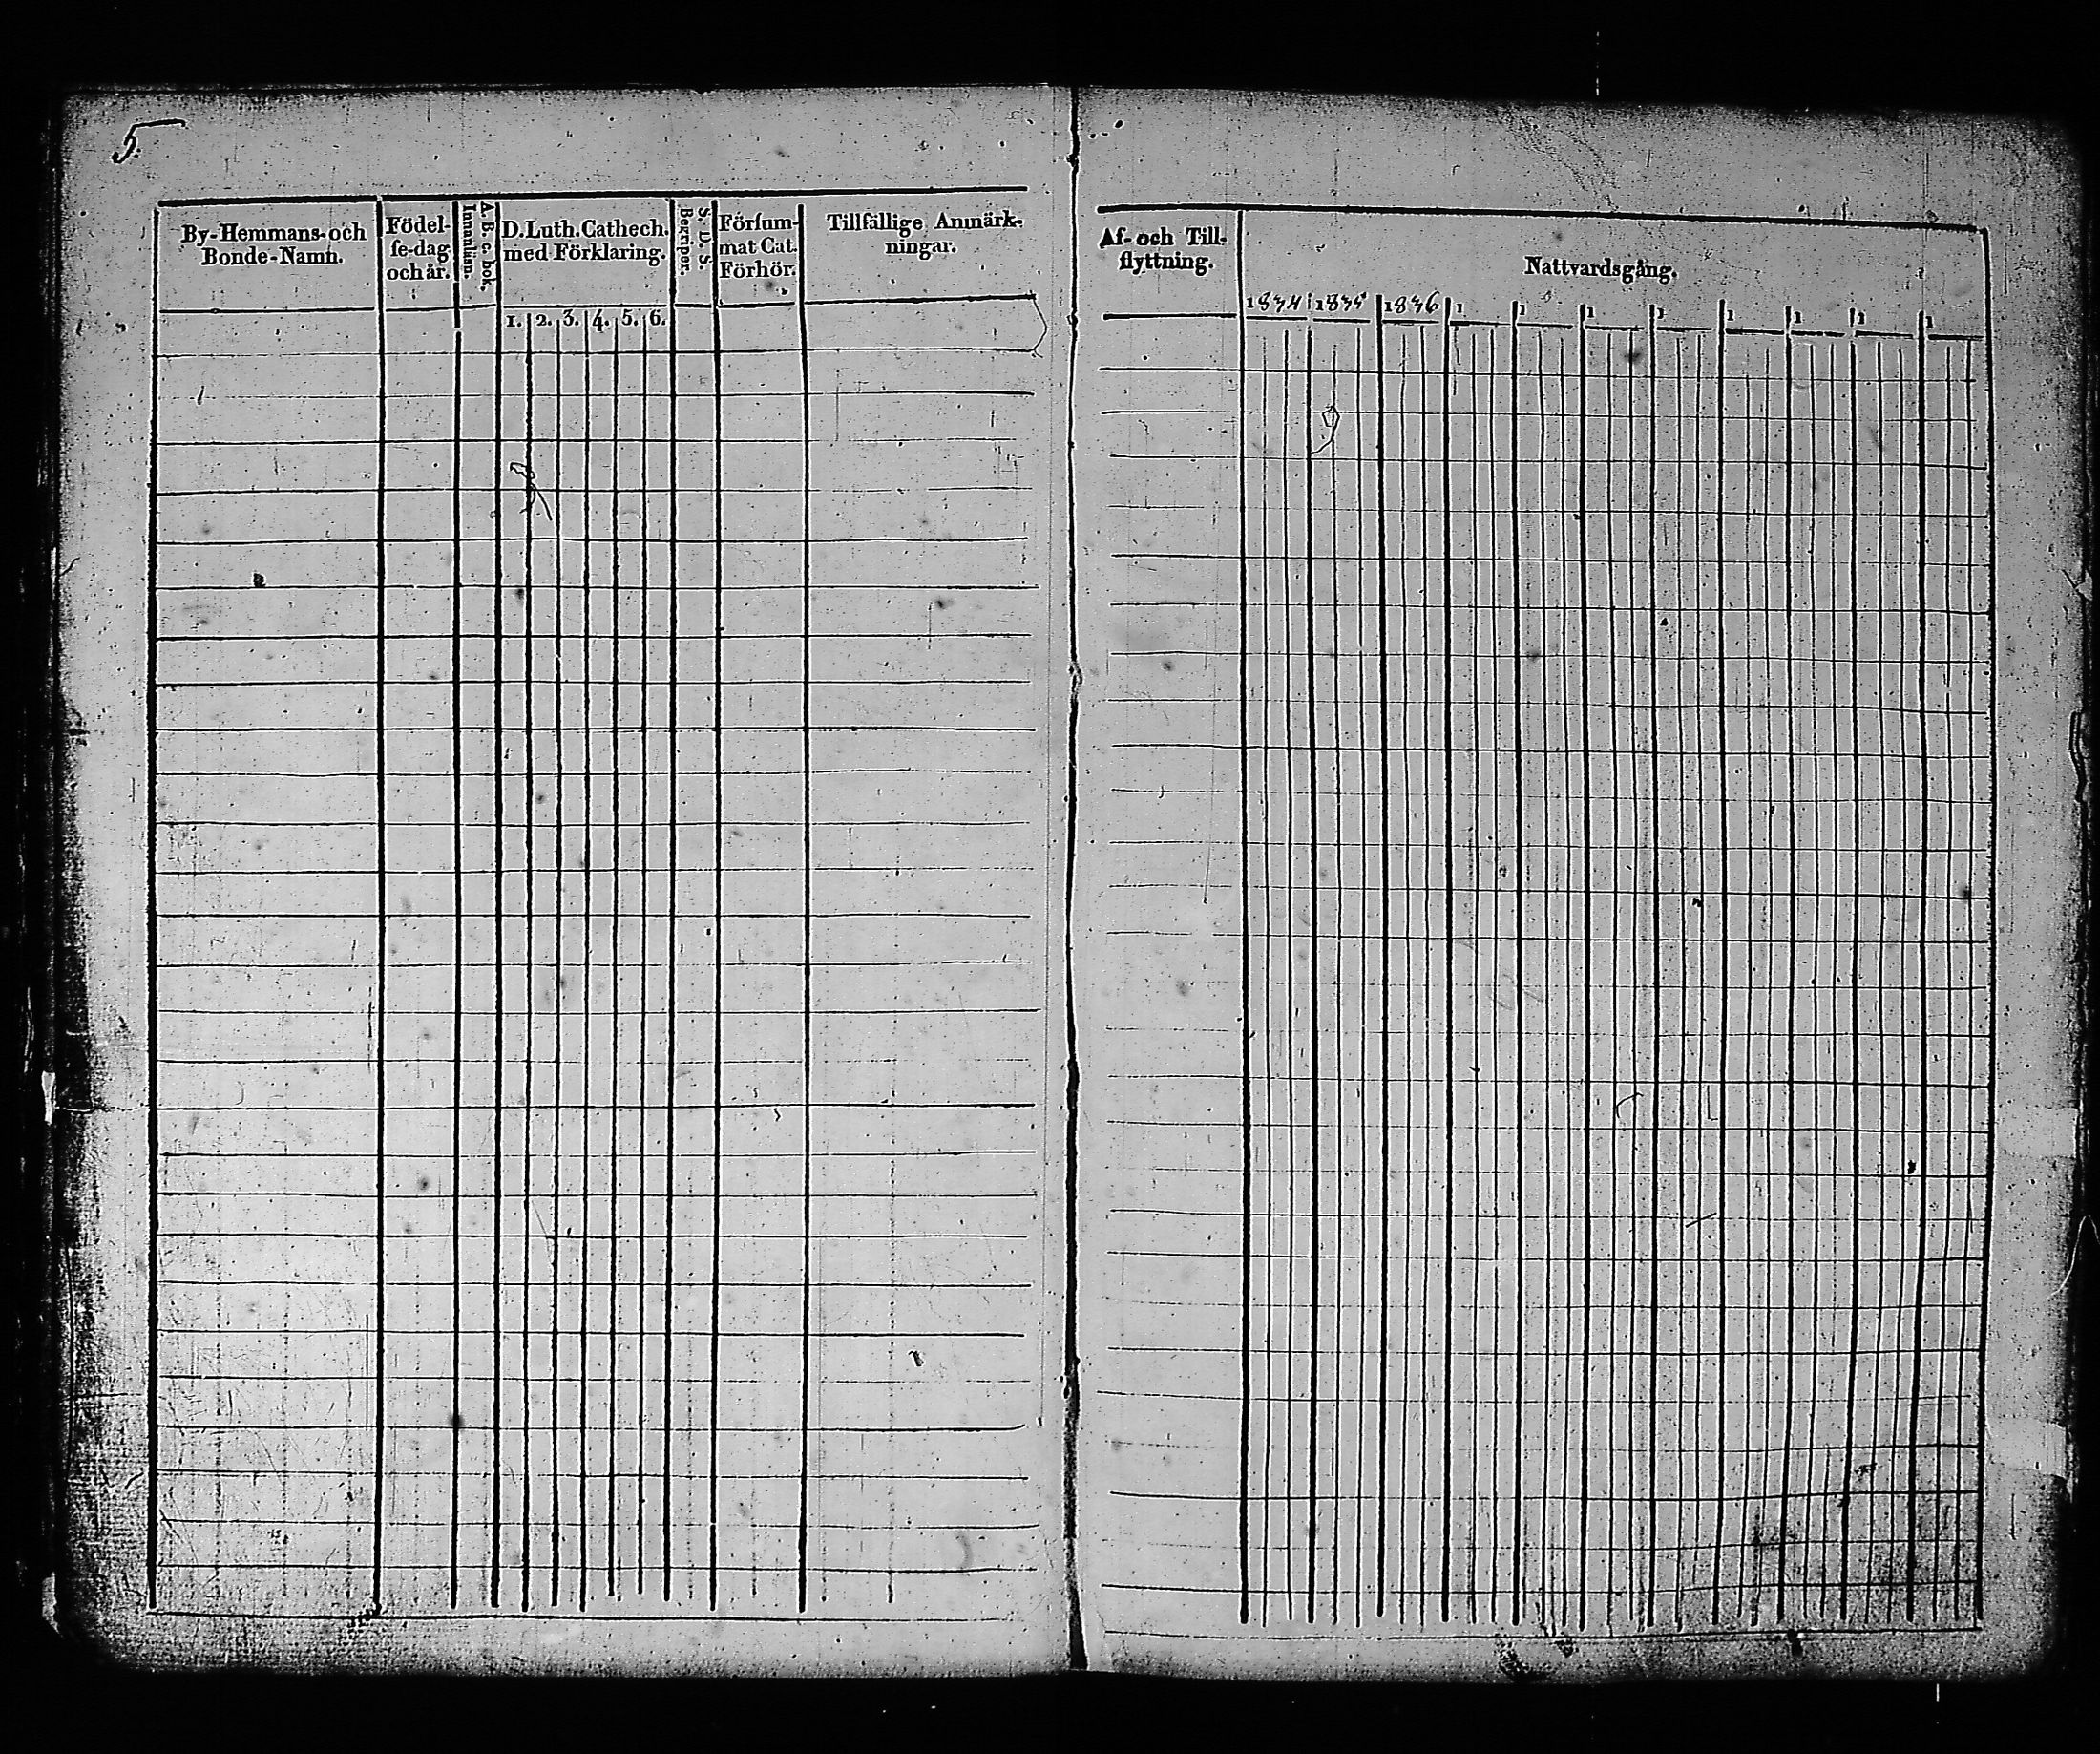 5.
By-Hemmans- och
Bonde-Namn.
Födel-
se-dag
och år.
A. B. c. bok.
Innanläsn.
D. Luth. Cathech.
med Förklaring.
1. 2. 3. 4. 5. 6.
S. D. S.
Begriper.
Försum-
mat Cat.
Förhör.
Tillfällige Anmärk-
ningar.
Af- och Till-
flyttning.
Nattvardsgång.
1834 1835 1836 1 1 1 1 1 1 1 1